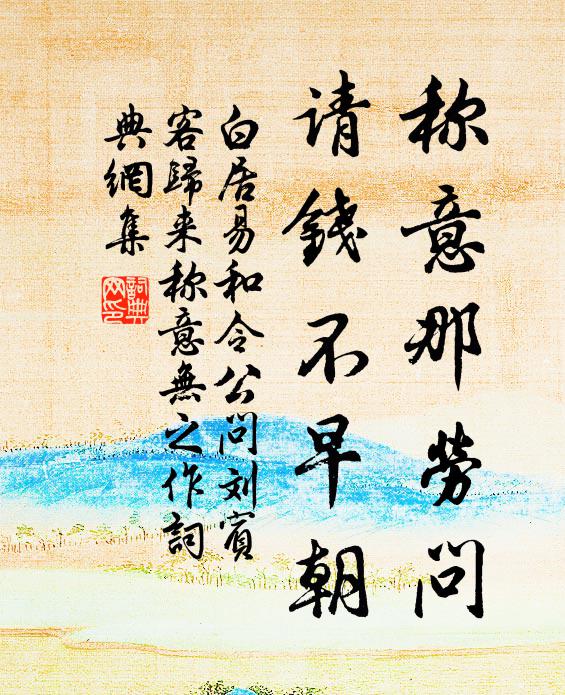 称意那勞问
请錢不早朝
白居易和令公问刘賓
客歸来称意無之作詞
典網集
詞典
网印